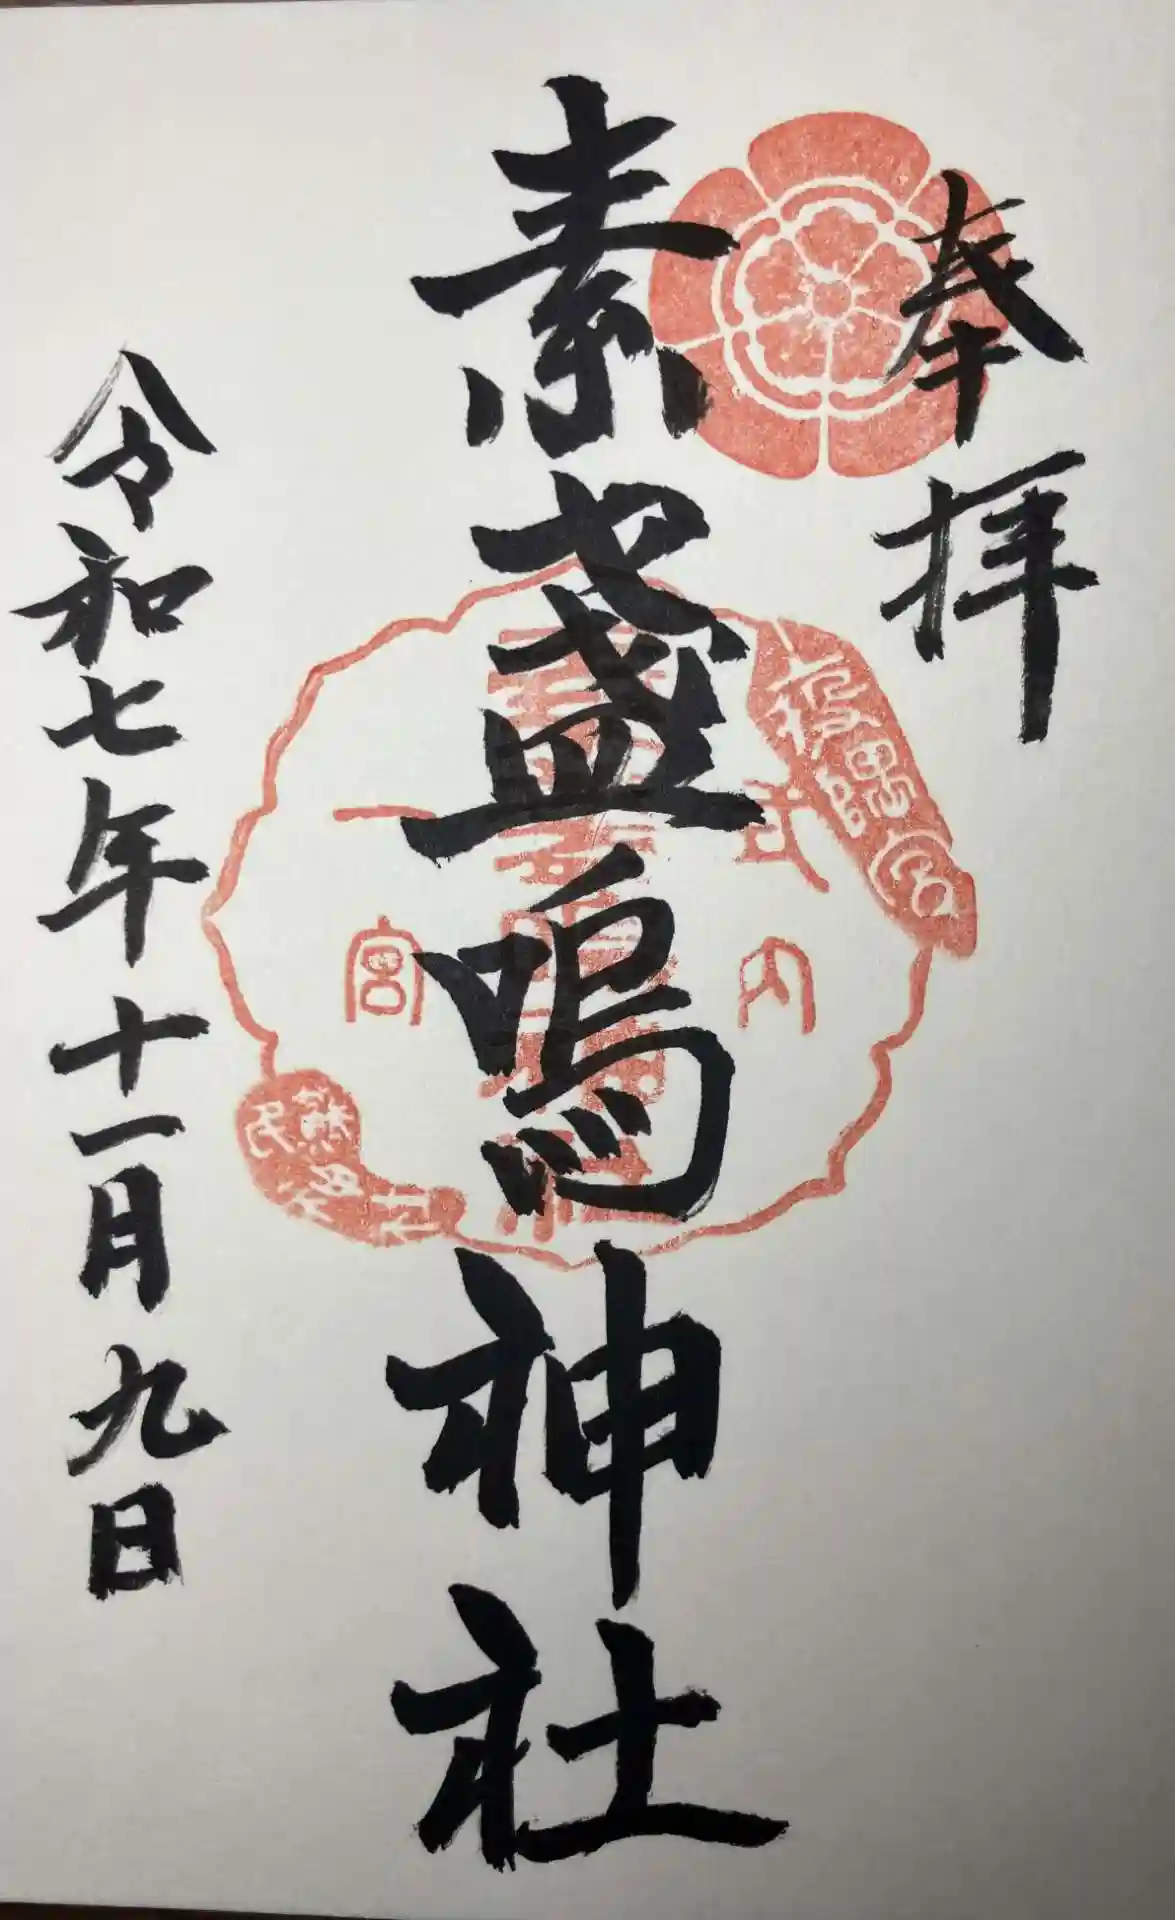 奉拝
素盞嗚神社
式内
一宮
令和七年十一月九日